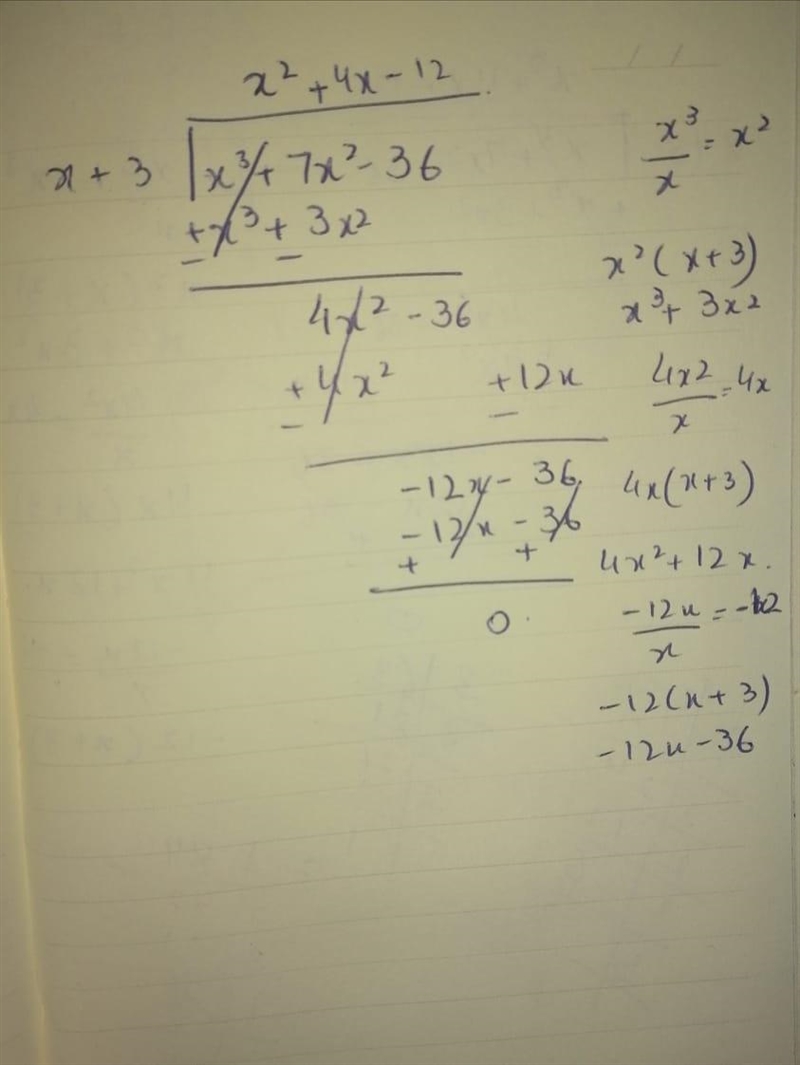 x² + 4x - 12
x + 3 | x³ + 7x² - 36
+ x³ + 3x²
- -
4x² - 36
+ 4x² + 12x
- -
-12x - 36
-12x - 36
+ +
0
x³/x = x²
x² (x+3)
x³ + 3x²
4x²/x = 4x
4x(x+3)
4x² + 12x.
-12x/x = -12
-12(x+3)
-12x - 36